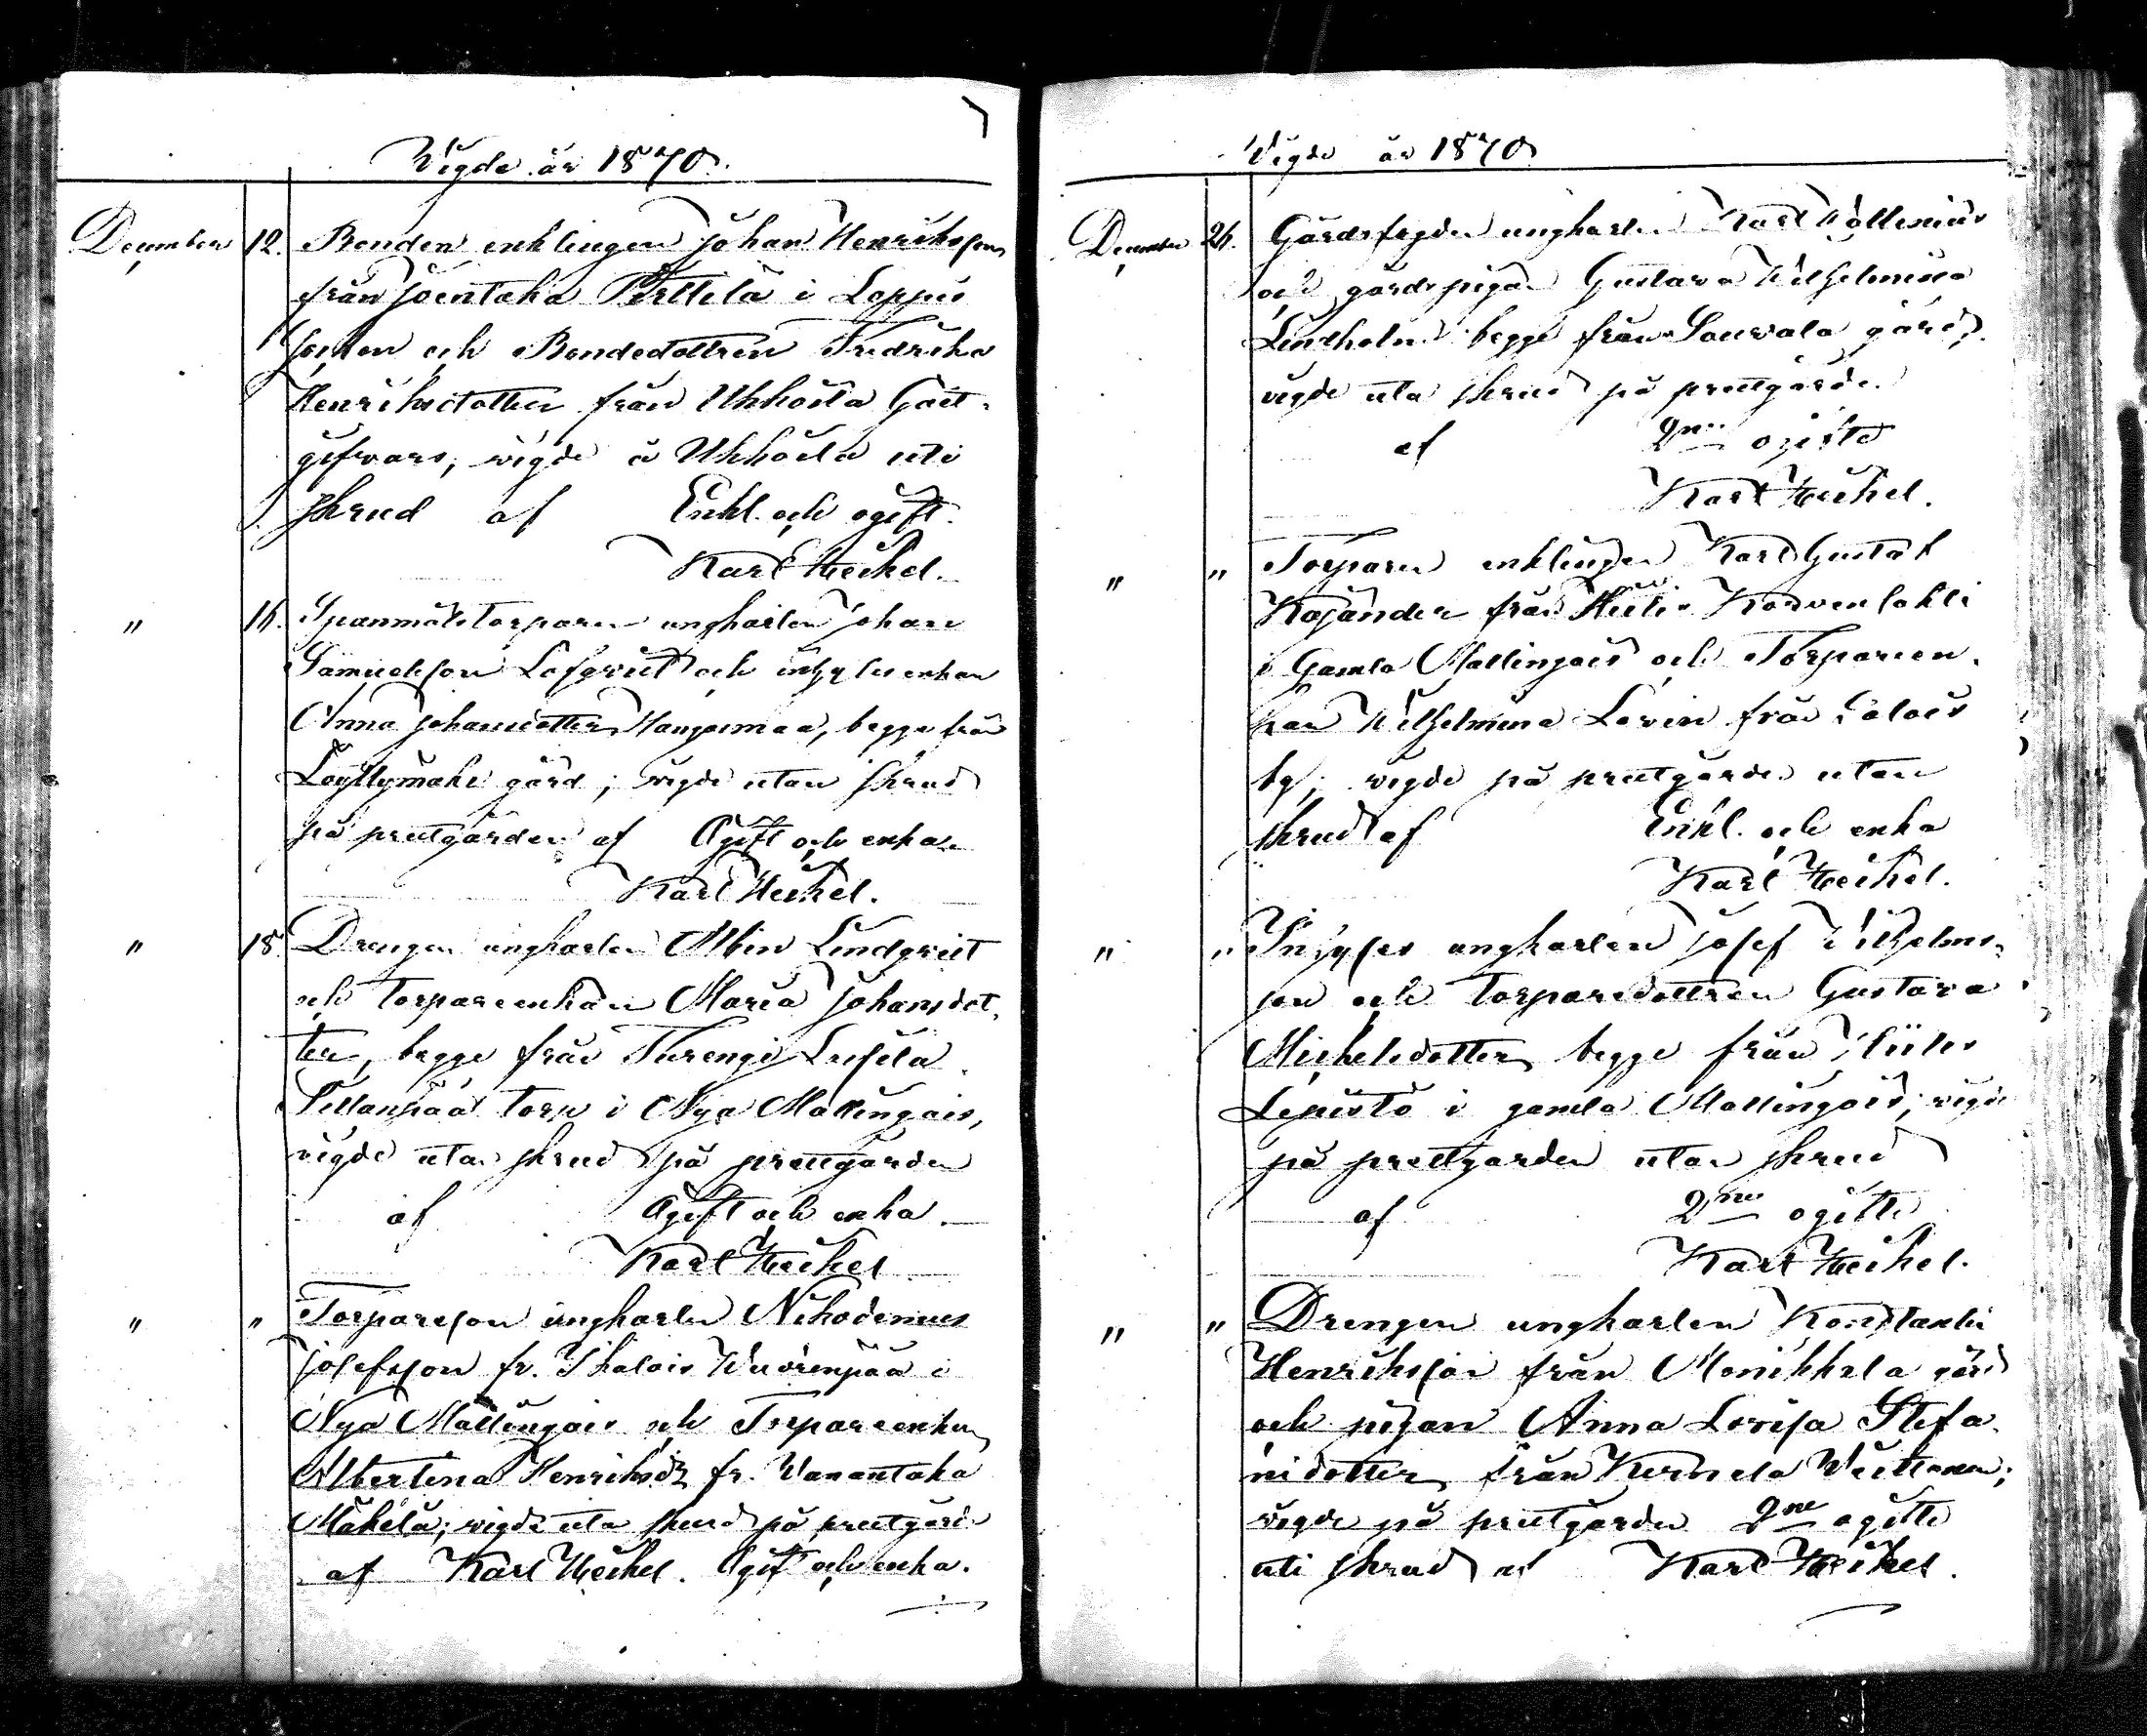 Vigde år 1870.
December 12. Bonden enklingen Johan Henriksson
från Joentaka Perttilä i Loppis
socken och Bondedottren Fredrika
Henriksdotter från Uhkoila Gäst-
gifvars, vigde å Uhkoila uti
skrud af Enkl. och ogift.
Karl Heikel.
" 16. Spanmålstorparen ungkarlen Johan
Samuelsson Löfqvist och inhyses enkan
Anna Johansdotter Hangasmaa, begge från
Löyttymäki gård; vigde utan skrud
på prestgården af Ogift och enka
Karl Heikel.
" 18. Drengen ungkarlen Albin Lindqvist
och torpareenkan Maria Johansdot-
ter, begge från Turengi
Sillanpää torp i Nya Mallingais,
vigde utan skrud på prestgården
af Ogift och enka.
Karl Heikel
" " Torpareson ungkarlen Nikodemus
Josefsson fr. Ihalois Vuorenpää i
Nya Mallingais och Torpareenkan
Albertina Henriksdr fr. Vanantaka
Mäkelä; vigde utan skrud på prestgård
af Karl Heikel. Ogift och enka.
Vigde år 1870
December 26. Gårdsfogden ungkarlen Karl
och gårdspigan Gustava Wilhelmina
Lindholm begge från Sauvala gård,
vigde utan skrud på prestgården
af 2ne ogifta
Karl Heikel.
" " Torparen enklingen Karl Gustaf
Kojander från Korvenlahti
i Gamla Mallingais och Torpareen-
kan Wilhelmina Lovin från
by; vigde på prestgården utan
skrud af Enkl. och enka
Karl Heikel.
" " Inhyses ungkarlen Josef Wilhelms-
son och torparedottren Gustava
Michelsdotter begge från
Lepistö i gamla Mallingais; vigde
på prestgården utan skrud
af 2ne ogifte
Karl Heikel.
" " Drengen ungkarlen Konstantin
Henriksson från Monikkala gård
och pigan Anna Lovisa Stefa-
nidotter från Kernala
vigde på prestgården 2ne ogifte
uti skrud af Karl Heikel.